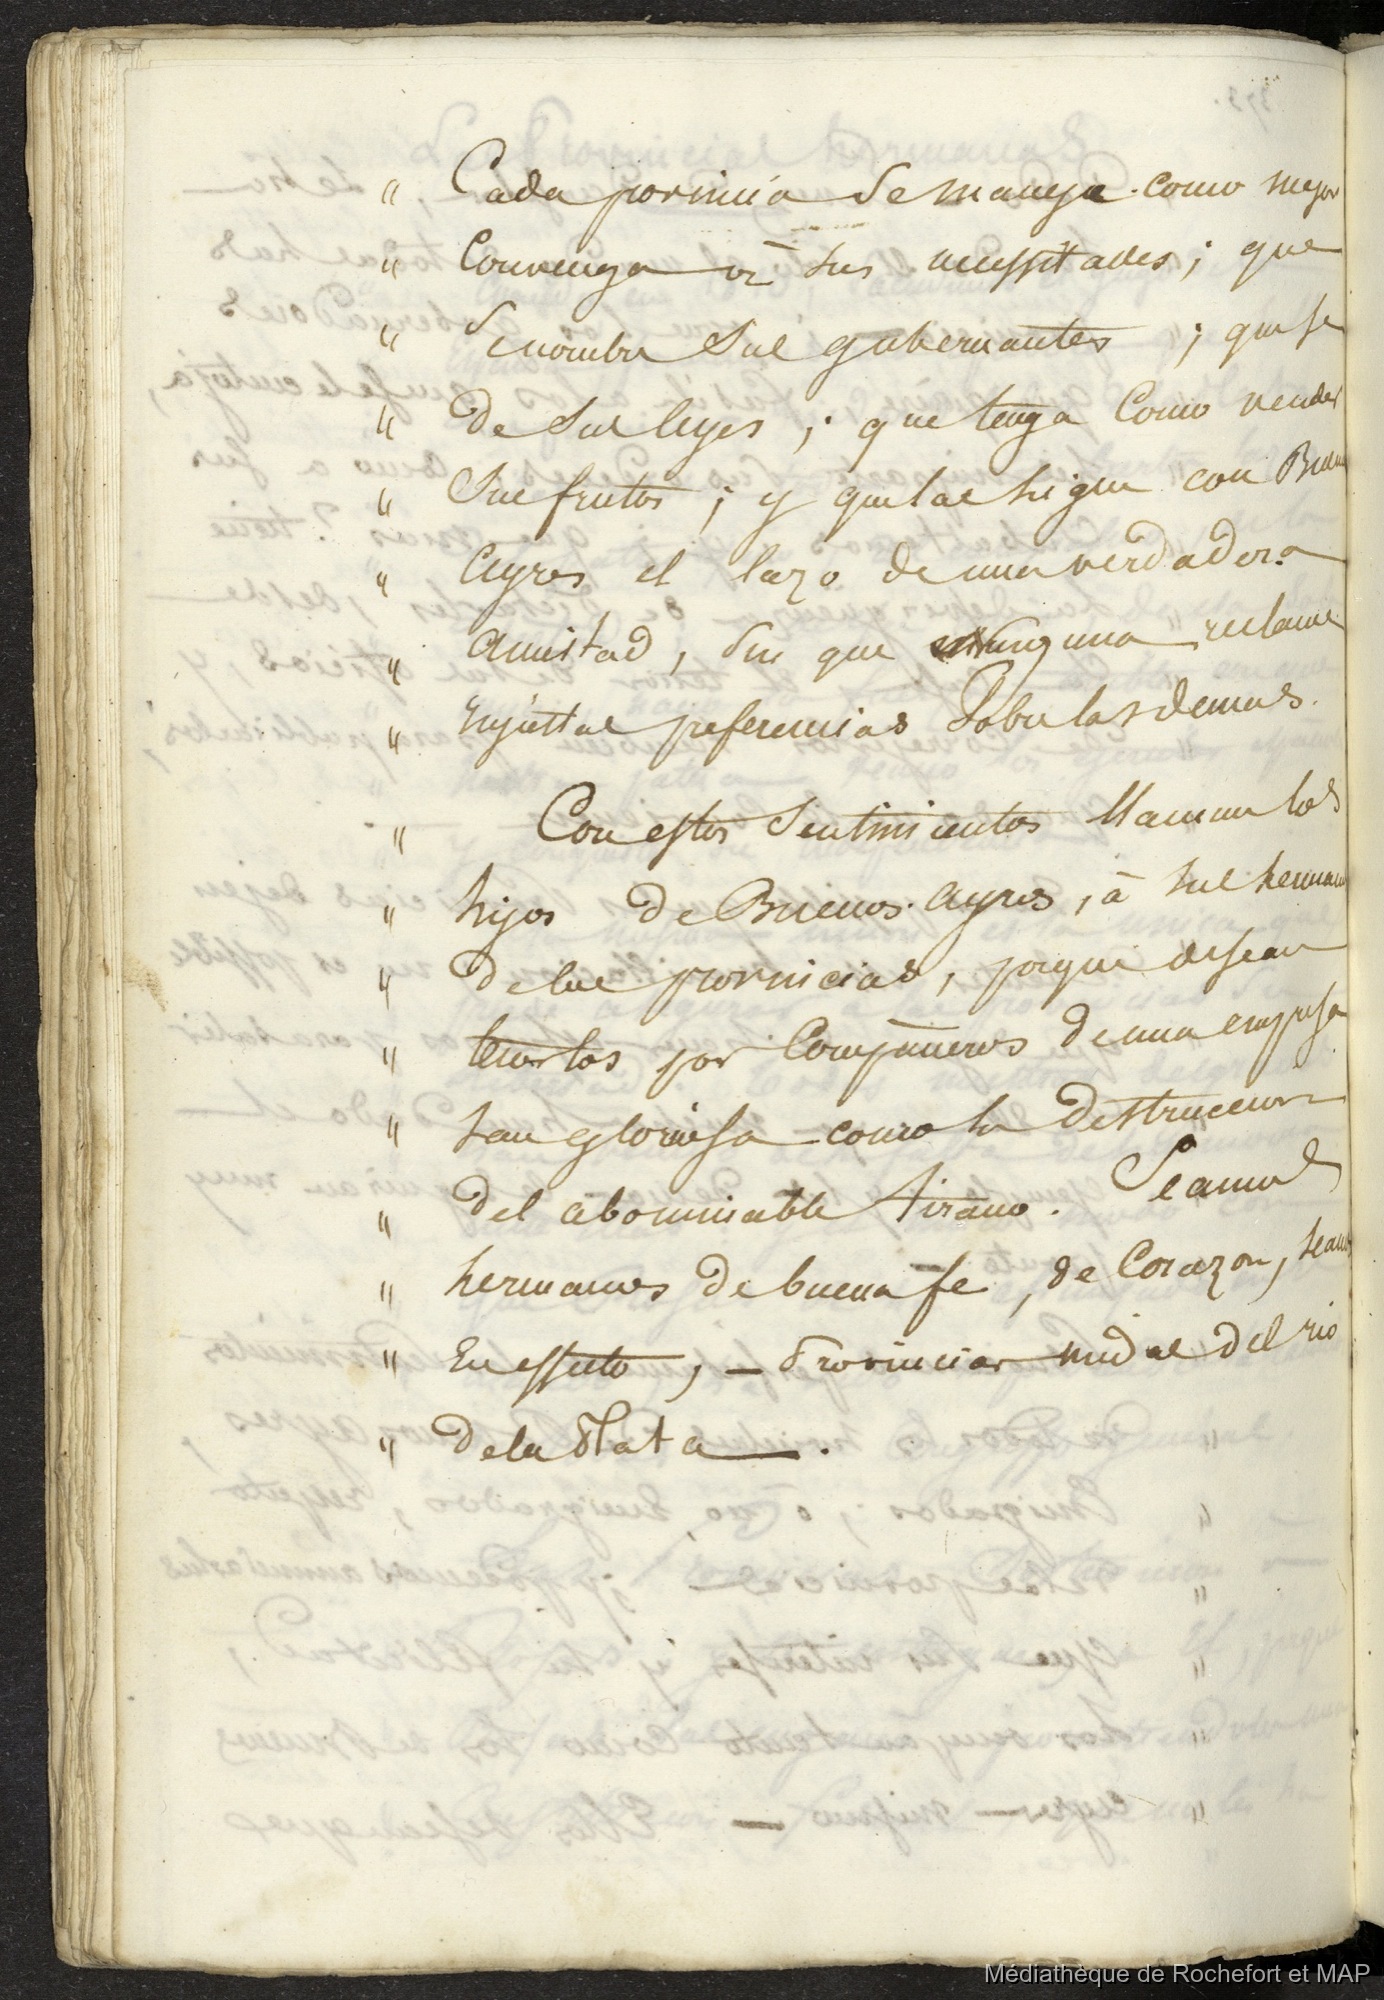 “ Cada porincia se maneja como mejor
“ Convenga à sus necessitades ; que
“ Senombre sus gubernantes ; que se
“ de sus leyes ; que tenga Como vender
“ Sus frutos ; y que las ligue con Buenos
“ Ayres el lazo de una verdadera
“ amistad , sin que ninguna reclame
“ Enjustas preferencias Sobre las demas.
“ Con estos Sentimientos llaman los
“ hijos de Buenos-Ayres , à sus hermanos
“ de las provincias , porque desean
“ tenerlos por Compañeros de una empresa
“ tan gloriosa como la destruccion
“ del abominable tirano. Seamos
“ hermanos de buena fe , de Corazon, seamos
“ En effecto , — Provincias unidas del rio
“ de la Plata — .
Médiathèque de Rochefort et MAP